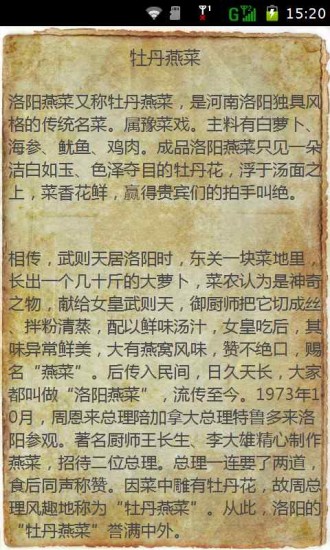 15:20
牡丹燕菜
洛阳燕菜又称牡丹燕菜，是河南洛阳独具风
格的传统名菜。属豫菜戏。主料有白萝卜、
海参、鱿鱼、鸡肉。成品洛阳燕菜只见一朵
洁白如玉、色泽夺目的牡丹花，浮于汤面之
上，菜香花鲜，赢得贵宾们的拍手叫绝。
相传，武则天居洛阳时，东关一块菜地里，
长出一个几十斤的大萝卜，菜农认为是神奇
之物，献给女皇武则天，御厨师把它切成丝
拌粉清蒸，配以鲜味汤汁，女皇吃后，其
味异常鲜美，大有燕窝风味，赞不绝口，赐
名“燕菜”。后传入民间，日久天长，大家
都叫做“洛阳燕菜”，流传至今。1973年1
0月，周恩来总理陪加拿大总理特鲁多来洛
阳参观。著名厨师王长生、李大雄精心制作
燕菜，招待二位总理。总理一连要了两道，
食后同声称赞。因菜中雕有牡丹花，故周总
理风趣地称为“牡丹燕菜”。从此，洛阳的
“牡丹燕菜”誉满中外。